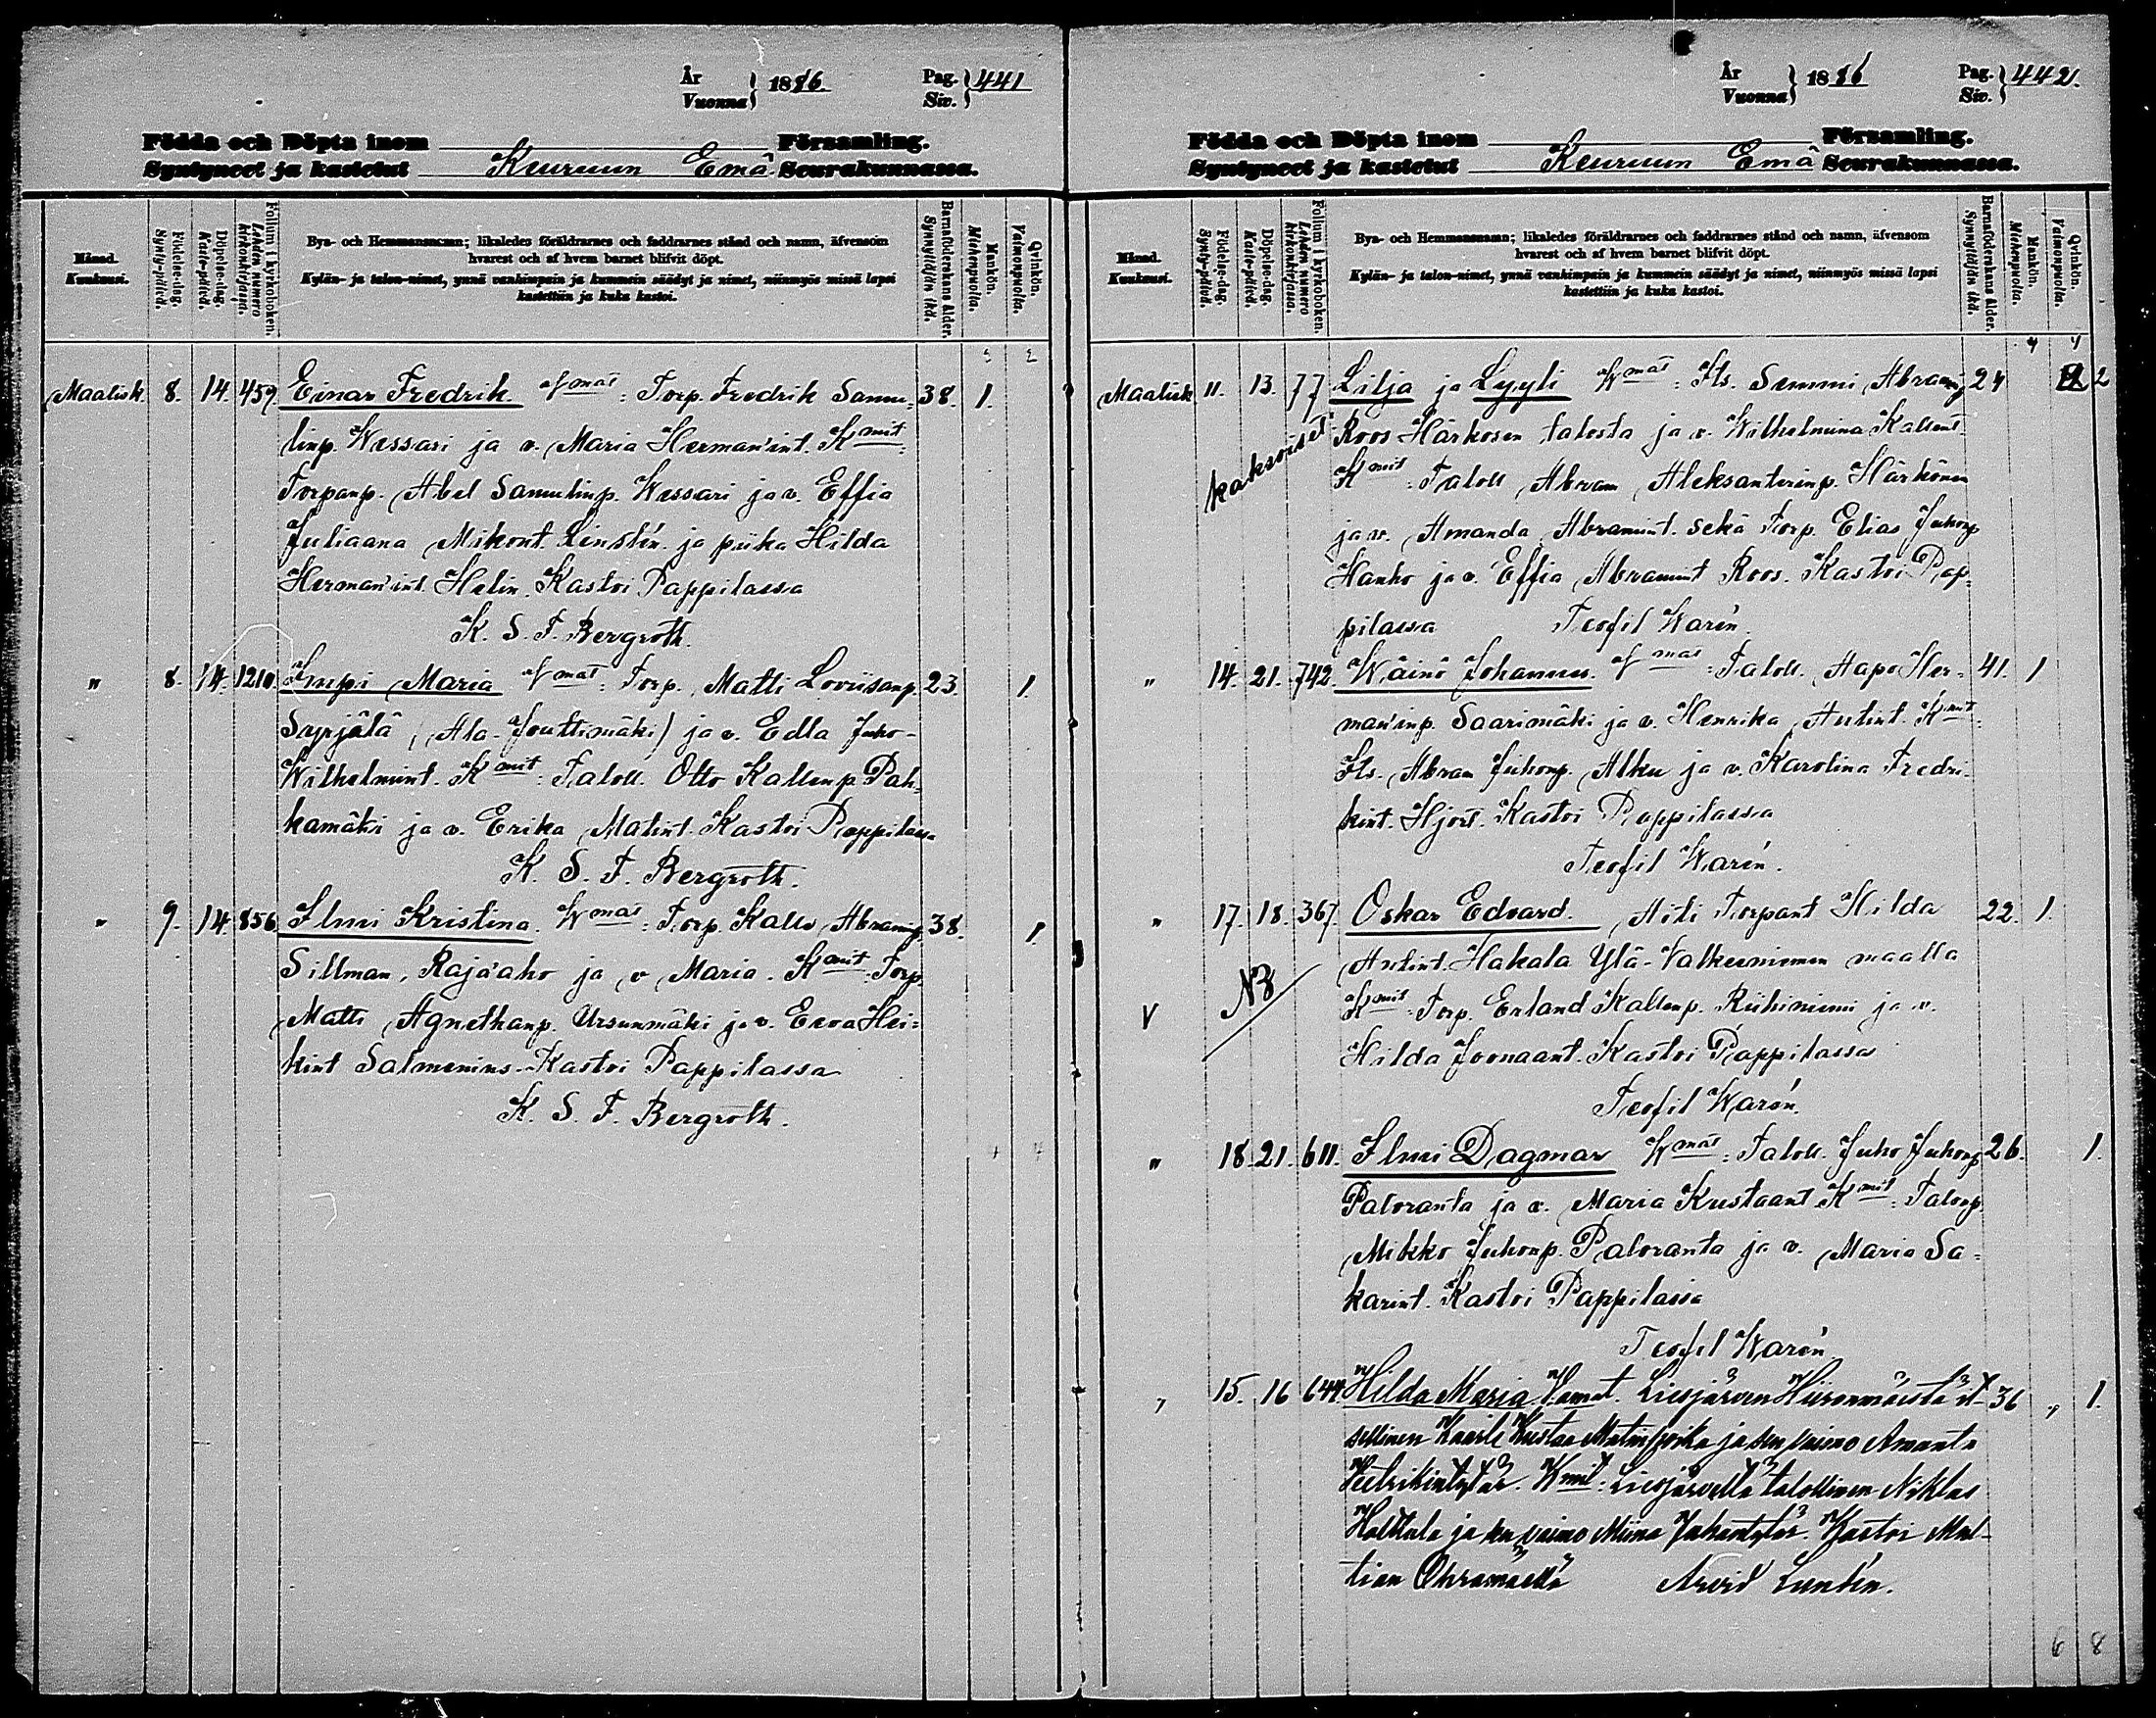 År
Vuonna } 1886.
Pag.
Siv. } 441
Födda och Döpta inom Församling.
Syntyneet ja kastetut Keuruun Emä Seurakunnassa.
Månad.
Kuukausi.
Födelse-dag.
Synty-päivä.
Döpelse-dag.
Kaste-päivä.
Folium i kyrkoboken.
Lehden numero kirkonkirjassa.
Bya- och Hemmansnamn; likaledes föräldrarnes och faddrarnes stånd och namn, äfvensom
hvarest och af hvem barnet blifvit döpt.
Kylän- ja talon-nimet, ynnä vanhimpain ja kummein säädyt ja nimet, niinmyös missä lapsi
kastettiin ja kuka kastoi.
Barnaföderskans ålder.
Synnyttäjän ikä.
Mankön.
Miehenpuolia.
Qvinkön.
Vaimonpuolia.
Maalisk. 8. 14. 459 Einar Fredrik Wmat: Torp. Fredrik Samu- 38. 1.
linp. Wessari ja v. Maria Herman'int. Kmit:
Torpanp. Abel Samulinp. Wessari ja v. Effia
Juliaana Mikont. Linstén ja piika Hilda
Herman'int. Helin. Kastoi Pappilassa
K. S. F. Bergroth.
" 8. 14. 1210. Impi Maria Wmat: Torp. Matti Loviisanp. 23. 1.
Syrjälä (Ala-Jouttimäki) ja v. Edla Juho-
Wilhelmint. Kmit: Taloll. Otto Kallenp. Pah-
kamäki ja v. Erika Matint. Kastoi Pappilassa
K. S. F. Bergroth.
" 9. 14. 856 Ilmi Kristina. Wmat: Torp. Kalle Abramip. 38. 1
Sillman, Raja'aho ja v Maria. Kmit: Torp.
Matti Agnethanp. Ursunmäki ja v. Eeva Hei-
kint Salmenius. Kastoi Pappilassa
K. S. F. Bergroth.
År
Vuonna } 1886
Pag.
Siv. } 442.
Födda och Döpta inom Församling.
Syntyneet ja kastetut Keuruun Emä Seurakunnassa.
Månad.
Kuukausi.
Födelse-dag.
Synty-päivä.
Döpelse-dag.
Kaste-päivä.
Folium i kyrkoboken.
Lehden numero kirkonkirjassa.
Bya- och Hemmansnamn; likaledes föräldrarnes och faddrarnes stånd och namn, äfvensom
hvarest och af hvem barnet blifvit döpt.
Kylän- ja talon-nimet, ynnä vanhimpain ja kummein säädyt ja nimet, niinmyös missä lapsi
kastettiin ja kuka kastoi.
Barnaföderskans ålder.
Synnyttäjän ikä.
Mankön.
Miehenpuolia.
Qvinkön.
Vaimonpuolia.
4 4
Maalisk 11. 13. 77 Lilja ja Lyyli Wmat: Its. Semmi Abramip 24 2
kaksoiset
Roos Härkosen talosta ja v. Wilhelmina Kallent.
Kmit: Taloll Abram Aleksanterinp. Härkönen
ja v. Amanda Abramint. sekä Torp. Elias Juhonp
Hanho ja v. Effia Abramint Roos. Kastoi Pap-
pilassa Teofil Warén.
" 14. 21. 742. Wäinö Johannes. Wmat: Taloll. Aapo Her- 41. 1
man'inp. Saarimäki ja v. Henrika Antint. Kmit:
Its. Abram Juhonp. Alku ja v. Karolina Fredri-
kint. Hjort. Kastoi Pappilassa
Teofil Warén.
" 17. 18. 367. Oskar Edvard. Äiti Torpant Hilda 22. 1.
Antint. Hakala Ylä-Valkeeniemen maalla
V NB Kmit: Torp. Erland Kallenp. Riihiniemi ja v.
Hilda Joonaant. Kastoi Pappilassa
Teofil Warén.
" 18. 21. 611. Ilmi Dagmar Wmat: Taloll. Juho Juhonp 26. 1.
Paloranta ja v. Maria Kustaant. Kmit: Talonp.
Mikko Juhonp. Paloranta ja v. Maria Sa-
karint. Kastoi Pappilassa
Teofil Warén
" 15. 16 644. Hilda Maria. Vamat. Liesjärven Hiironmäestä it- 36 " 1.
sellinen Kaarle Kustaa Matinpoika ja sen vaimo Amanta
Kmit: Liesjärveltä talollinen Niklas
ja sen vaimo Miina Kastoi Mul-
tian Ohramäellä Arvid Lundén.
6 8